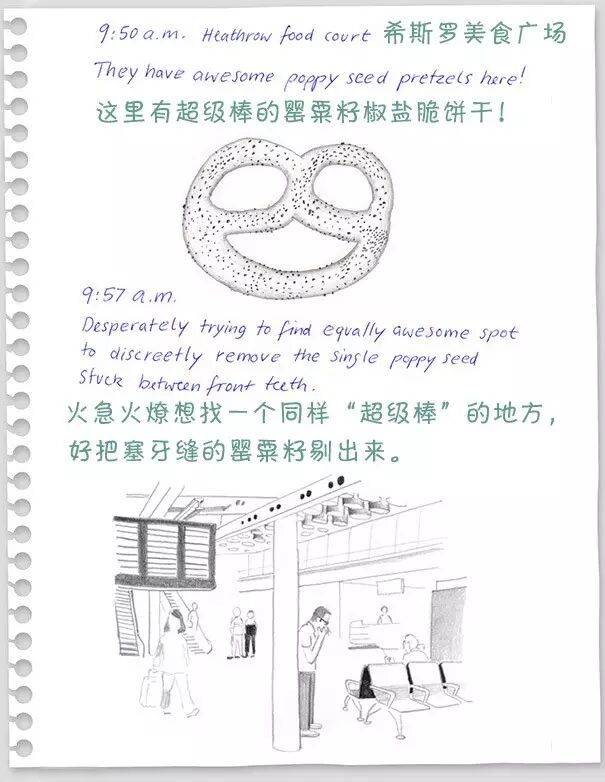 9:50 a.m. Heathrow food court 希斯罗美食广场
They have awesome poppy seed pretzels here!
这里有超级棒的罂粟籽椒盐脆饼干！
9:57 a.m.
Desperately trying to find equally awesome spot
to discreetly remove the single poppy seed
stuck between front teeth.
火急火燎想找一个同样“超级棒”的地方，
好把塞牙缝的罂粟籽剔出来。